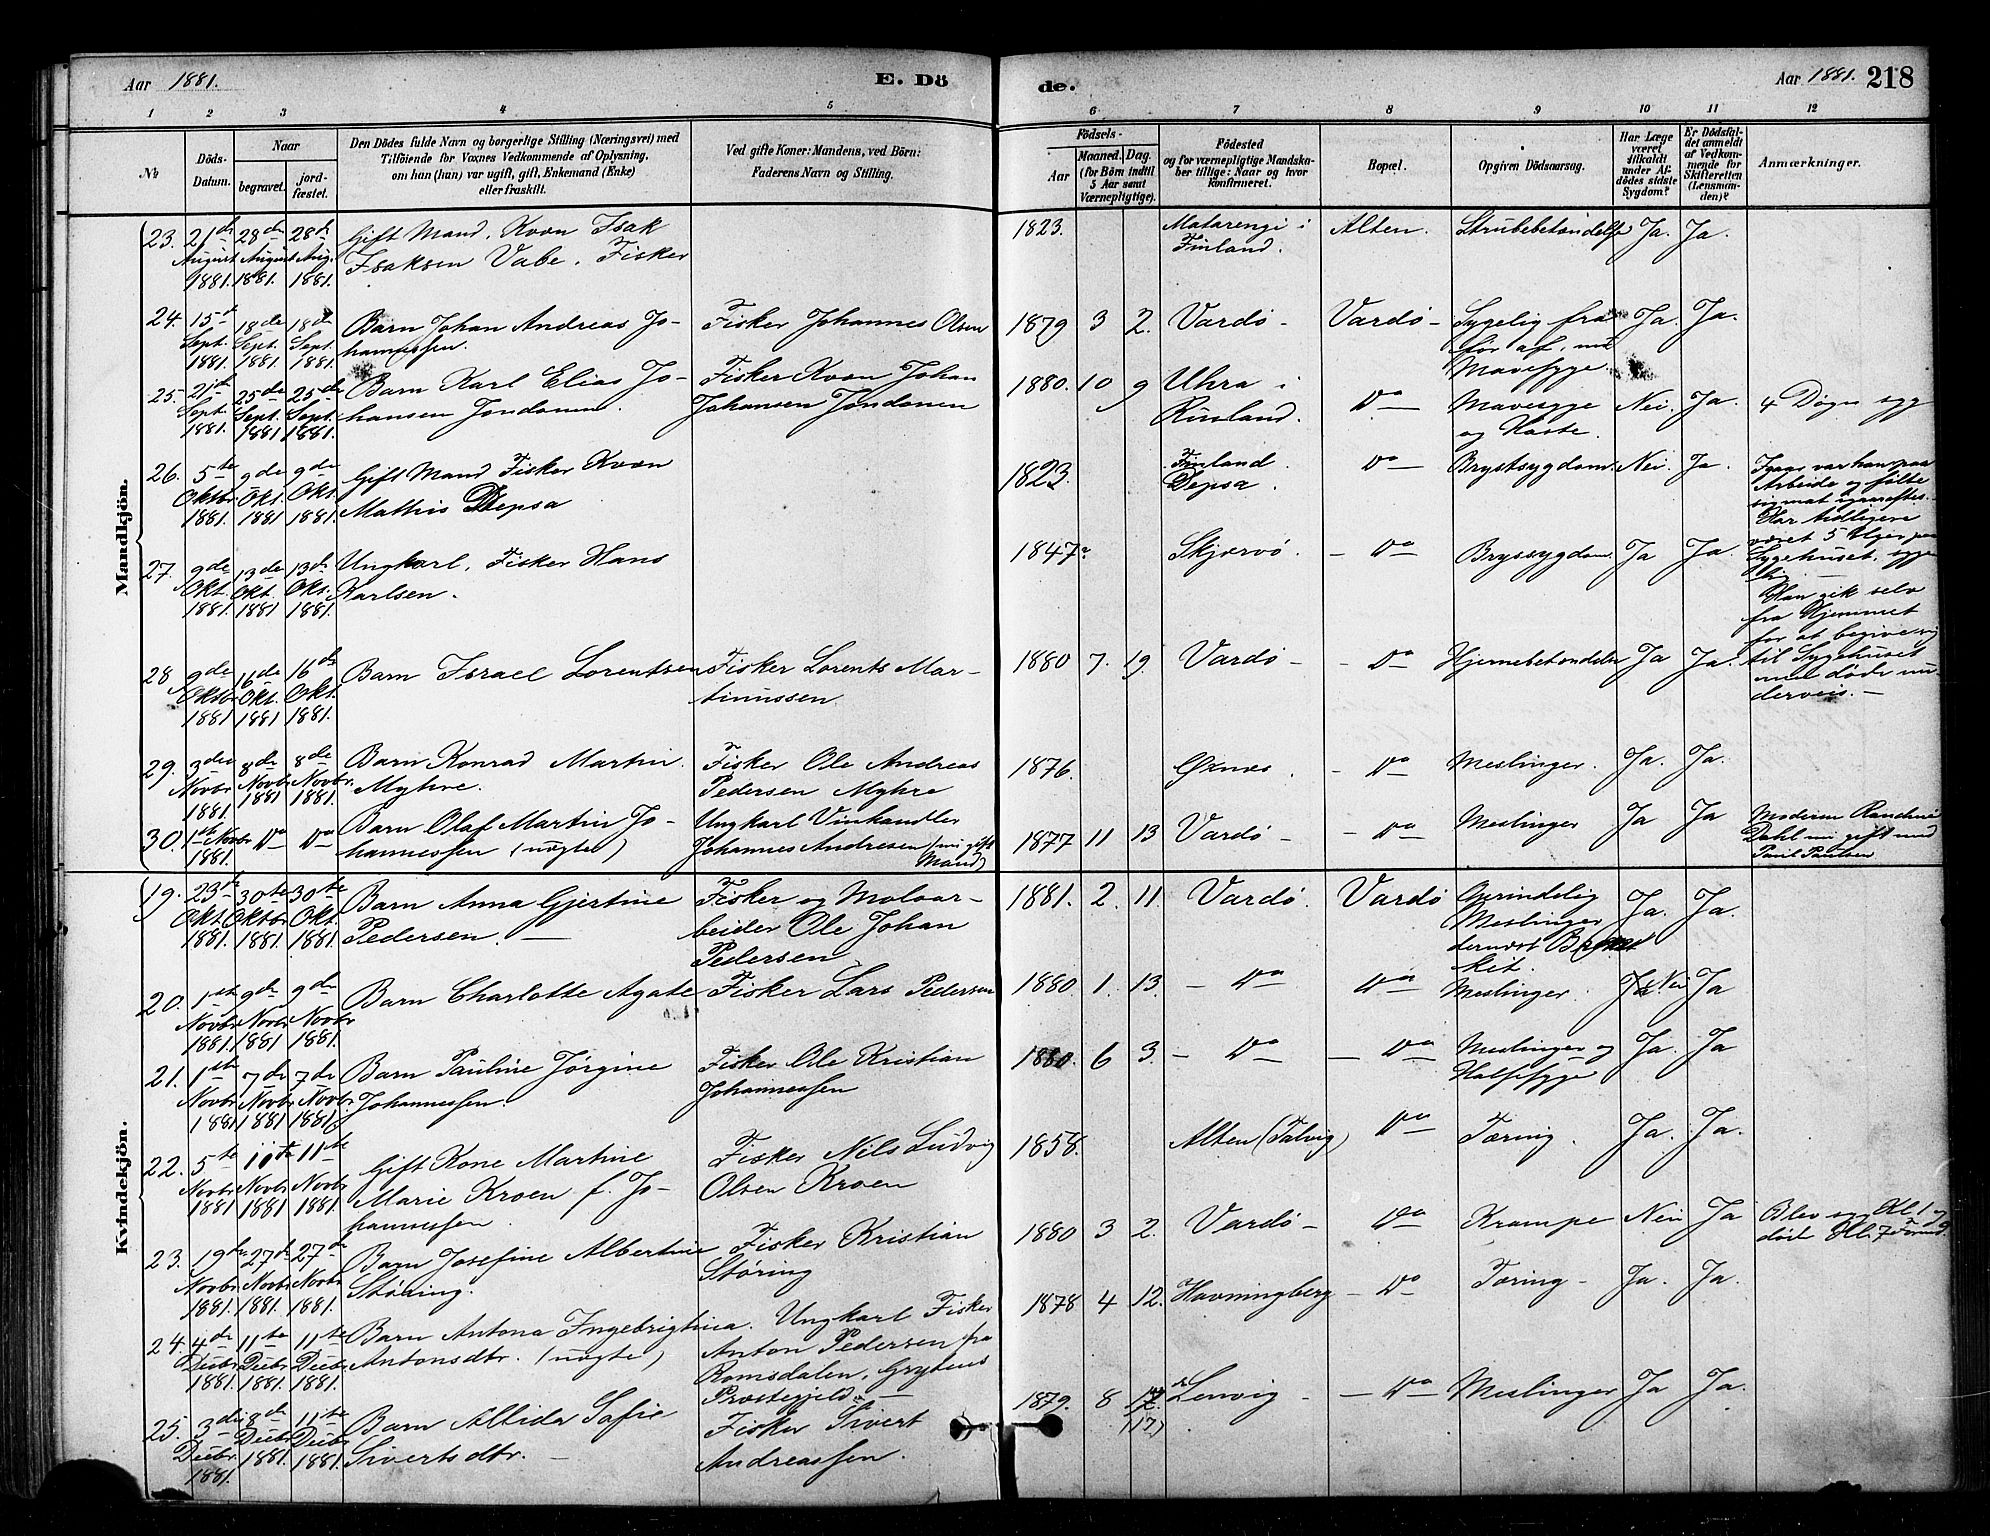 Aar 1881. E. Dö de. Aar 1881. 218
1 2 3 4 5 6 7 8 9 10 11 12
№ Döds-Datum. Naar begravet. jordfæstet.
Den Dödes fulde Navn og borgerlige Stilling (Næringsvei) med
Tilföiende for Voxnes Vedkommende af Oplysning,
om han (hun) var ugift, gift, Enkemand (Enke)
eller fraskilt.
Ved gifte Koner: Mandens, ved Börn:
Faderens Navn og Stilling.
Födsels-
Aar Maaned. Dag.
(for Börn indtil
5 Aar samt
Værnepligtige).
Födested
og for værnepligtige Mandska-
ber tillige: Naar og hvor
konfirmeret.
Bopæl.
Opgiven Dödsaarsag.
Har Læge
været
tilkaldt
under Af-
dödes sidste
Sygdom?
Er Dödsfal-
det anmeldt
af Vedkom-
mende for
Skifteretten
(Lensman-
den)?
Anmærkninger.
Mandkjön.
23. 21de 28de 28de Gift Mand, Kvæn Isak 1823. Matarengi i Alten. Strubebetændelse Ja. Ja.
August August Aug. Isaksen Vabe. Fisker Finland.
1881. 1881. 1881.
24. 15de 18de 18de Barn Johan Andreas Jo- Fisker Johannes Olsen 1879 3 2. Vardö - Vardö - Sygelig fra Ja. Ja.
Sept. Sept. Sept. hannessen. før af,
1881. 1881 1881 Mavesyge.
25. 21de 25de 25de Barn Karl Elias Jo- Fisker Kvæn Johan 1880. 10 9 Uhra i Do Mavesyge Nei. Ja. 4 Døgn syg
Sept. Sept. Sept. hansen Jondanen. Johansen Jondanen og Hoste.
1881. 1881 1881.
26. 5te 9de 9de Gift Mand Fisker Kvæn 1823. Finland Do Brystsygdom. Nei. Ja. Igaar var han paa
Oktbr Okt. Okt. Mathis Depsa Depsa. Arbeide og følte
1881. 1881 1881.
Har tidligere
27. 9de 13de 13de Ungkarl, Fisker Hans 1847. Skjærvö. - Do Ja Ja. været 5 Uger paa
Okt. Okt. Okt. Karlsen. Sygehuset.
1881. 1881 1881.
Han gik selv
fra Hjemmet
28 9de 16de 16de Barn Israel Lorentsen Fisker Lorents Mar- 1880 7. 19. Vardö - - Do Hjernebetændelse Ja Ja. for at begive sig
Oktbr Okt. Okt. tinussen til Sygehuset
1881 1881 1881. men døde un-
derveis. -
29. 3die 8de 8de Barn Konrad Martin Fisker Ole Andreas 1876. Øxnes. - Do Meslinger. Ja. Ja.
Novbr Novbr Novbr. Myhre. Pedersen Myhre
1881. 1881 1881.
30. 1ste Novbr Do Do Barn Olaf Martin Jo- Ungkarl Vinhandler 1877 11 13 Vardö - - Do Meslinger Ja Ja Moderen
1881. hannessen (uægte) Johannes Andresen (nu gift Mand) Dahl nu gift med
Paul Paulsen
Kvindekjön.
19. 23de 30te 30te Barn Anna Gjertine Fisker og 1881. 2. 11. Vardö. Vardö Meslinger Ja. Ja.
Okt. Oktbr Okt. Pedersen. - beider Ole Johan dernæst
1881. 1881. 1881. Pedersen
20. 1ste 9de 9de Barn Charlotte Agate Fisker Lars Pedersen 1880. 1. 13. - Do Do Meslinger. Nei Ja
Novbr Novbr Novbr
1881. 1881 1881.
21. 1ste 7de 7de Barn Pauline Jørgine Fisker Ole Kristian 1880. 6 3. - Do - Do Meslinger og Ja. Ja
Novbr Novbr Novbr. Johannessen. Johannessen Halsesyge
1881 1881 1881.
22. 5te 11te 11te Gift Kone Martine Fisker Nils Ludvig 1858. Alten (Talvig) Do Tæring. Ja. Ja.
Novbr Novbr Novbr Marie Kroen f. Jo- Olsen Kroen
1881 1881 1881. hannessen.
23. 19de 27de 27de Barn Josefine Albertine Fisker Kristian 1880 3 2. Vardö - Do Krampe Nei Ja Blev syg Kl. 1 og
Novbr Novbr Novbr Støring. Støring døde Kl. 7
1881. 1881. 1881.
24. 4de 11te 11te Barn Antona Ingebrigtina. Ungkarl Fisker 1878 4 12. Havningberg - Do Tæring - Ja. Ja.
Decbr Decbr Decbr. Antonsdtr. (uægte) Anton Pedersen fra
1881. 1881. 1881. Romsdalen, Grytens
Prestegjeld. -
25. 3die 8de 11te Barn Altida Sofie Fisker Sivert 1879. 8 17) Lenvig - - Do Meslinger Ja Ja.
Decbr. Decbr Decbr Sivertsdtr. - Andreassen.
1881. 1881. 1881.